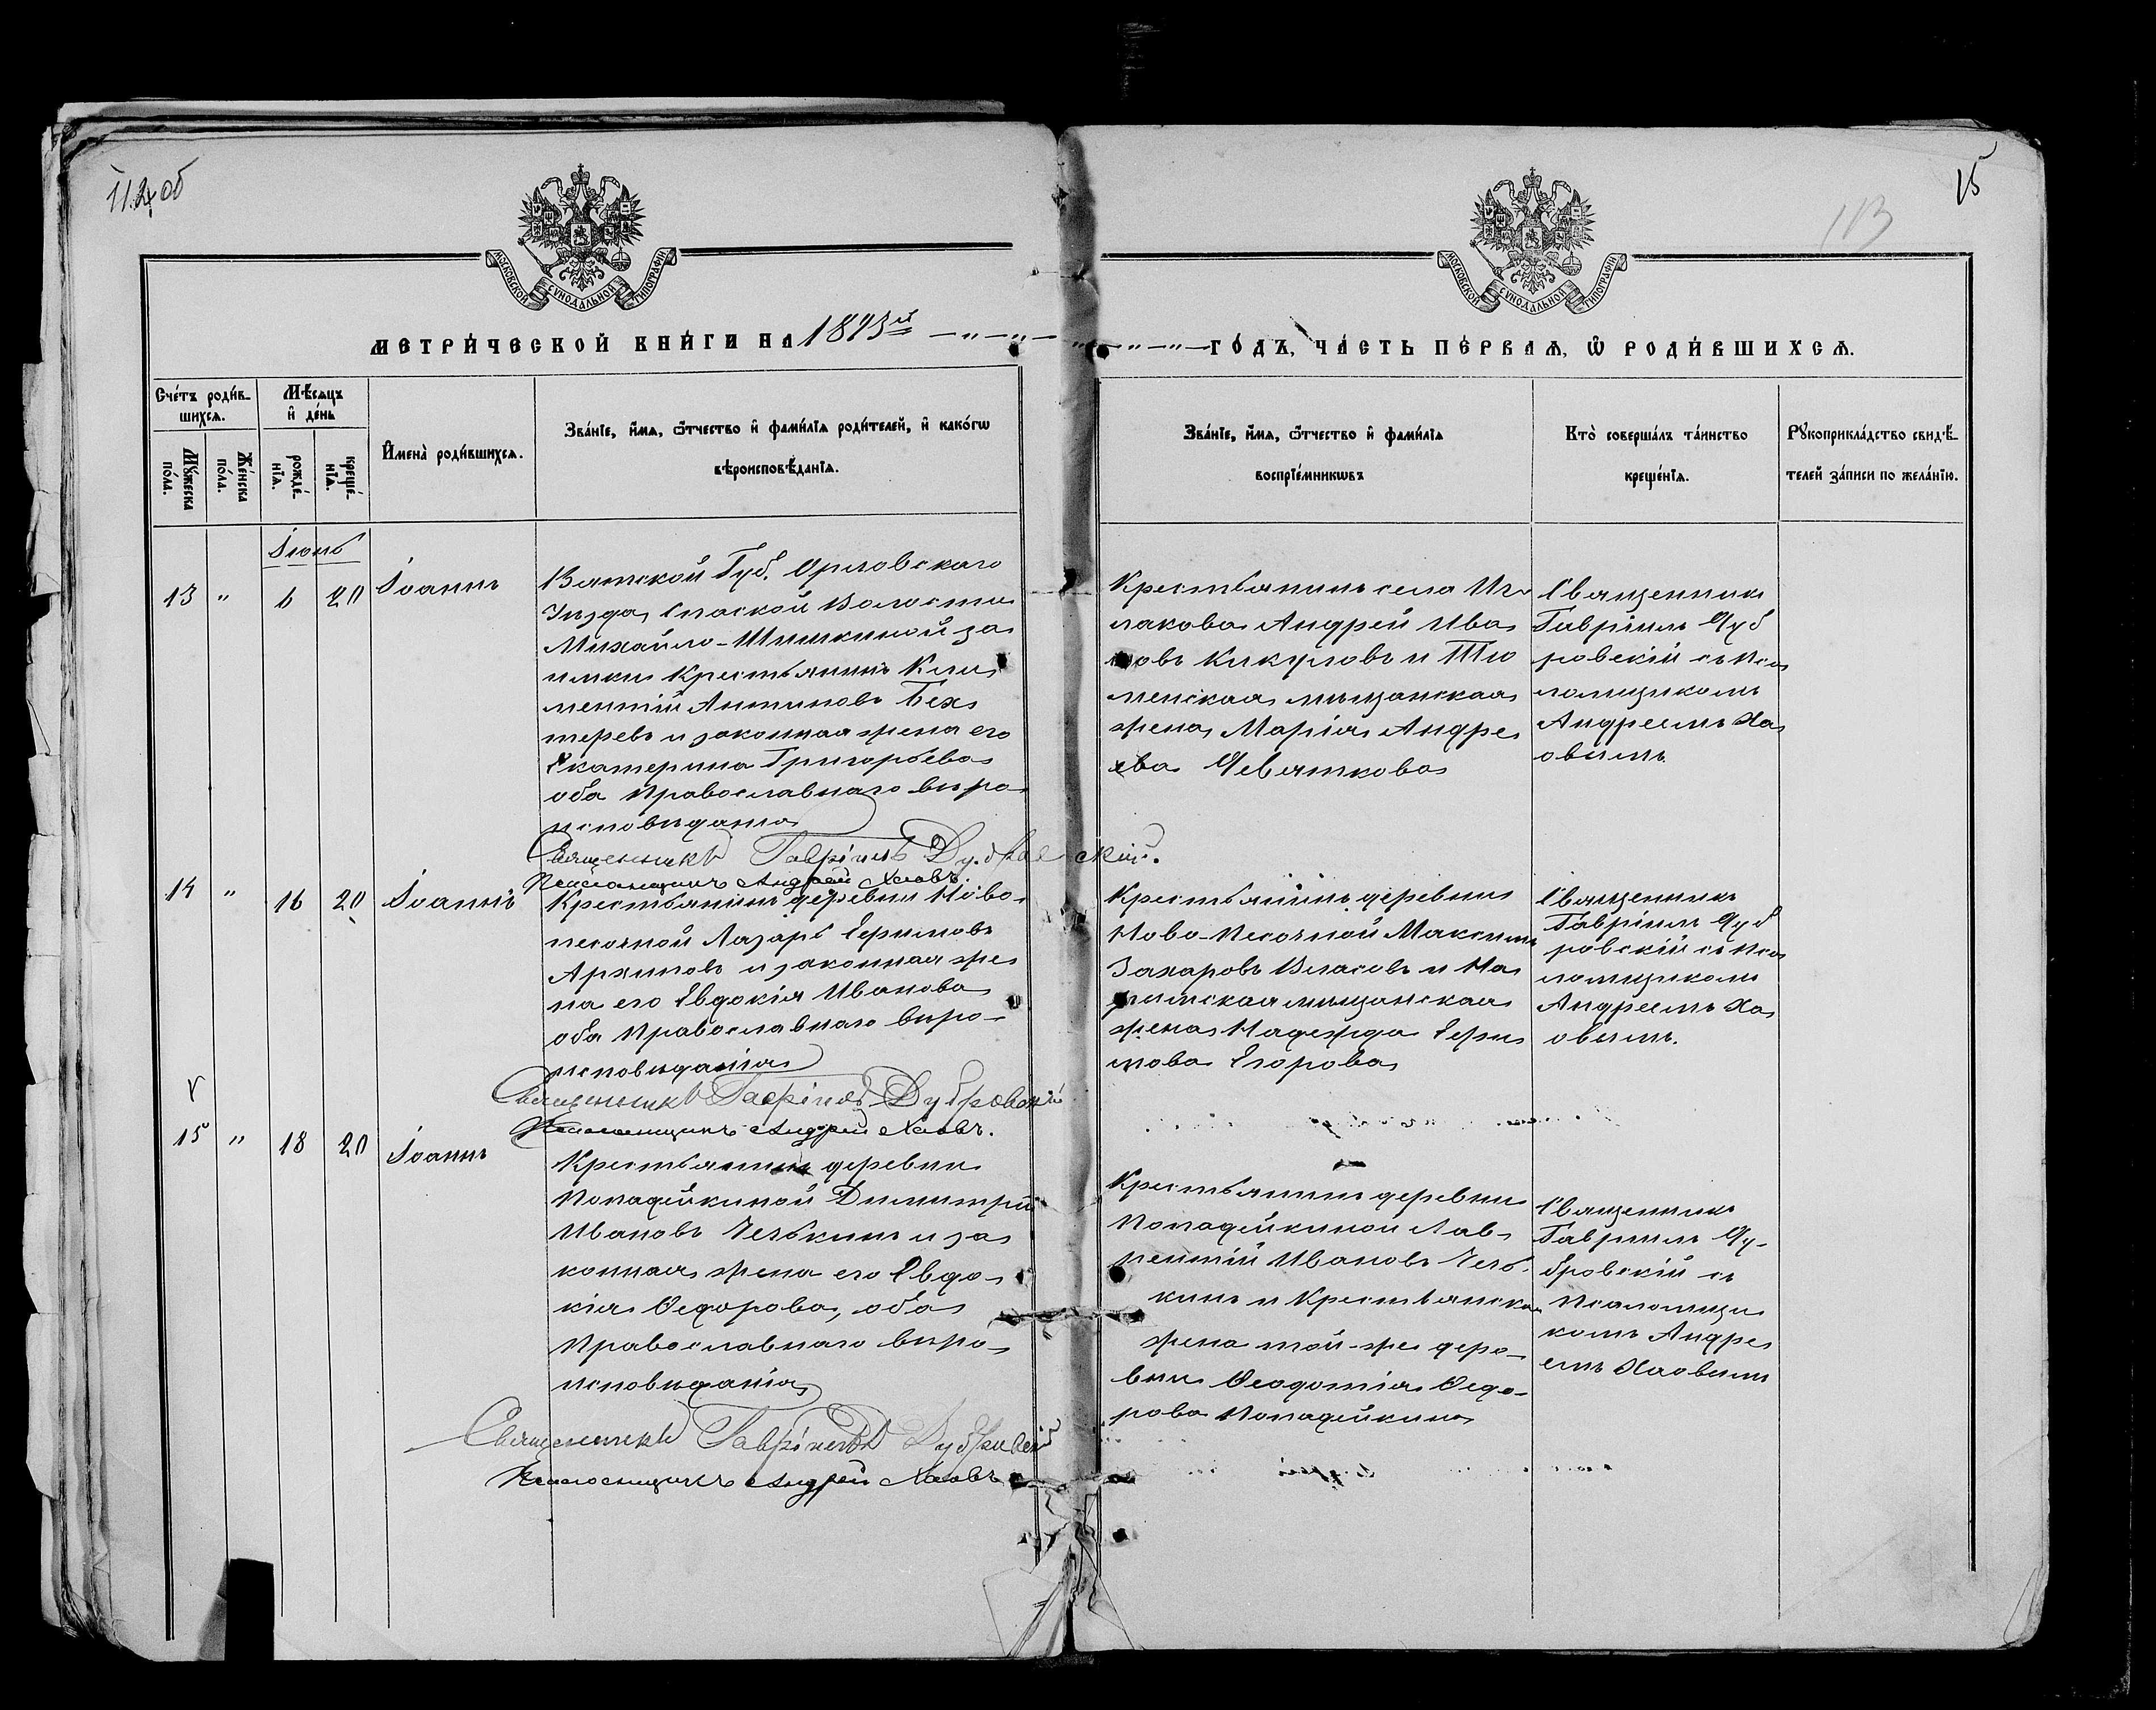 112 об
15
113
МОСКОВСКОЙ СУНОДАЛЬНОЙ ТИПОГРАФІИ
МОСКОВСКОЙ СУНОДАЛЬНОЙ ТИПОГРАФІИ
МЕТРИ́ЧЕСКОЙ КНИ́ГИ НА 1893й
ГО́ДЪ, ЧА́СТЬ ПЕ́РВАѦ, Ѡ҆ РОДИ́ВШИХСѦ.
Сче́тъ роди́в-
шихсѧ.
Мѣ́сяцъ
и҆ де́нь
Мꙋ́жеска
по́ла.
Же́нска
по́ла.
рожде́-
нїѧ.
креще́-
нїѧ.
И҆мена̀ роди́вшихсѧ.
Зва́нїе, и҆́мѧ, ѻ҆́тчество и҆ фами́лїѧ роди́телей, и҆ како́гѡ
вѣроисповѣ́данїѧ.
Зва́нїе, и҆́мѧ, ѻ҆́тчество и҆ фами́лїѧ
воспрїе́мникѡвъ
Кто̀ соверша́лъ та́инство
креще́нїѧ.
Рꙋкоприкла́дство свидѣ́-
телей за́писи по жела́нїю.
Іюнь
13 " 6 20 Іоаннъ
Вятской Губ. Орловскаго
Уѣзда, Спаской Волости
Михайло-Шишкиной за
имки Крестьянинъ Кли
ментій Антиповъ Бех
теревъ и законная жена его
Екатерина Григорьева
оба Православнаго вѣро-
исповѣданія
Священникъ Гавріилъ Дубровскій.
Псаломщикъ Андрей Хаовъ.
Крестьянинъ села
лакова Андрей Ива
новъ Кикуловъ и Тю
менская мѣщанская
жена Марія Андре
ева Девяткова
Священникъ
Гавріилъ Дуб
ровскій съ Пса
ломщикомъ
Андреемъ Ха
овымъ
14 " 16 20 Іоаннъ
Крестьянинъ деревни Ново-
песочной Лазарь Ефимовъ
Архиповъ и законная же
на его Евдокія Иванова
оба Православнаго вѣро-
исповѣданія
Священникъ Гавріилъ Дубровскій
Псаломщикъ Андрей Хаовъ.
Крестьянинъ деревни
Ново-Песочной Максимъ
Захаровъ Власовъ и На
рымская мѣщанская
жена Надежда Ефи
мова Егорова
Священникъ
Гавріилъ Дуб
ровскій съ Пса
ломщикомъ
Андреемъ Ха
овымъ.
15 " 18 20 Іоаннъ
Крестьянинъ деревни
Попадейкиной Димитрій
Ивановъ и за
конная жена его Евдо-
кія Ѳедорова, оба
Православнаго вѣро-
исповѣданія
Священникъ Гавріилъ Дубровскій
Псаломщикъ Андрей Хаовъ
Крестьянинъ деревни
Попадейкиной Лав-
рентій Ивановъ
кинъ и Крестьянская
жена той-же дере-
вни Ѳеодотія Ѳедо-
рова Попадейкина
Священникъ
Гавріилъ Ду-
бровскій съ
Псаломщи
комъ Андре
емъ Хаовымъ